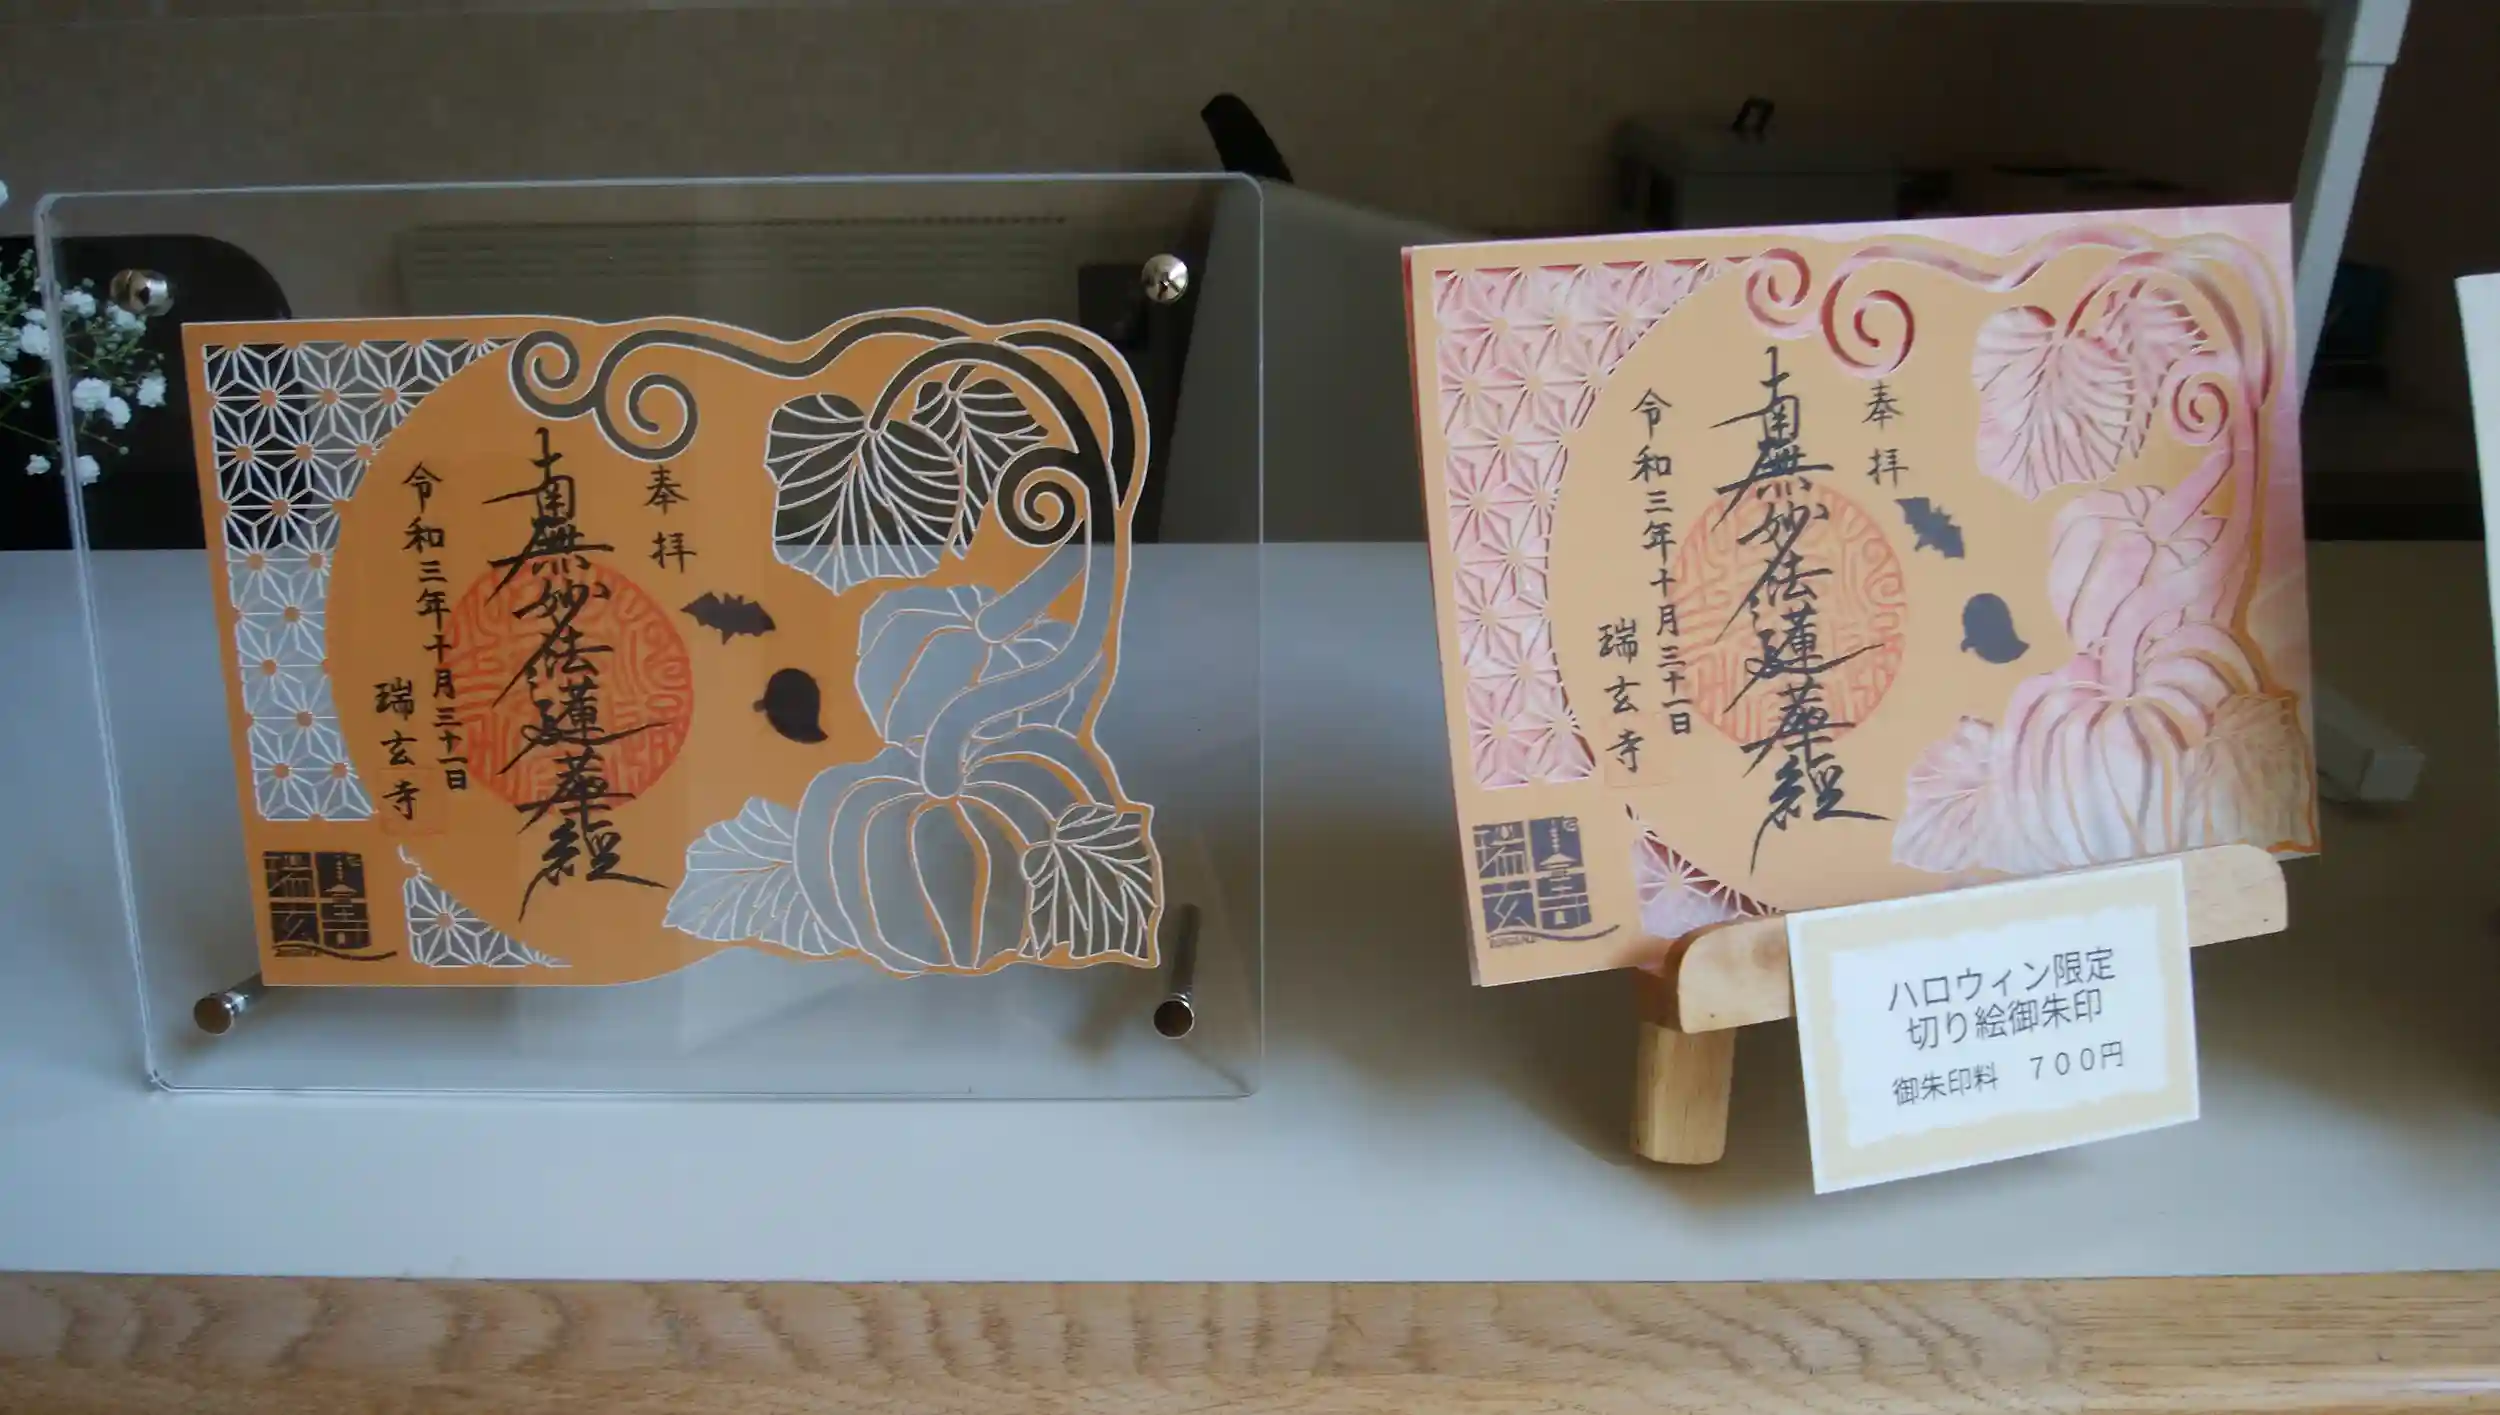 奉拝
南無妙法蓮華経
令和三年十月三十一日
瑞玄寺
奉拝
南無妙法蓮華経
令和三年十月三十一日
瑞玄寺
ハロウィン限定
切り絵御朱印
御朱印料　７００円